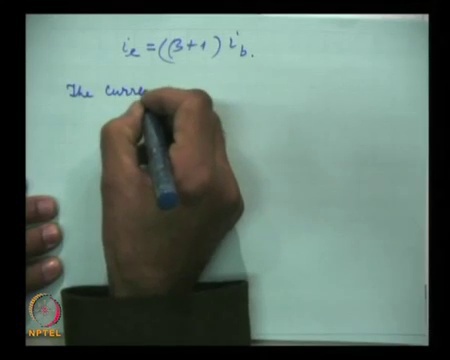 i_e = (β+1) i_b.
The curre
NPTEL